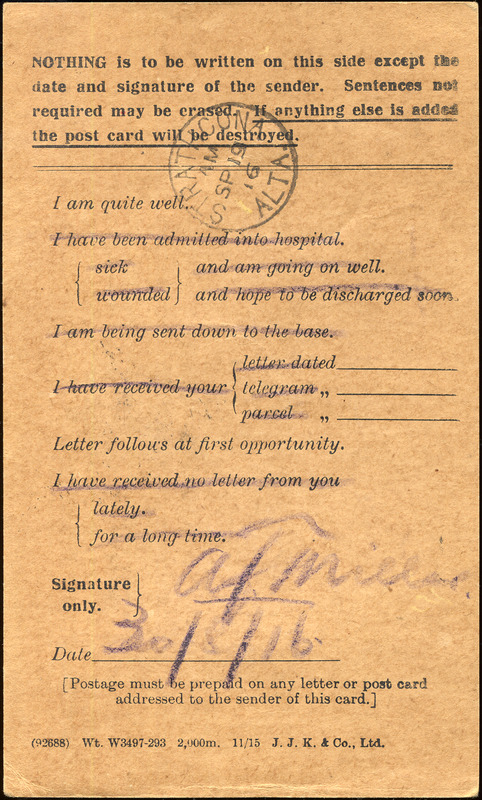 NOTHING is to be written on this side except the
date and signature of the sender. Sentences not
required may be erased. If anything else is added
the post card will be destroyed.
STRATHCONA
AM
SP 19
16
ALTA
I am quite well.
I have been admitted into hospital.
sick and am going on well.
wounded and hope to be discharged soon.
I am being sent down to the base.
letter dated
I have received your telegram „
parcel „
Letter follows at first opportunity.
I have received no letter from you
lately.
for a long time.
Signature
only.
Date 30/8/16
[Postage must be prepaid on any letter or post card
addressed to the sender of this card.]
(92688) Wt. W3497-293 2,000m. 11/15 J. J. K. & Co., Ltd.